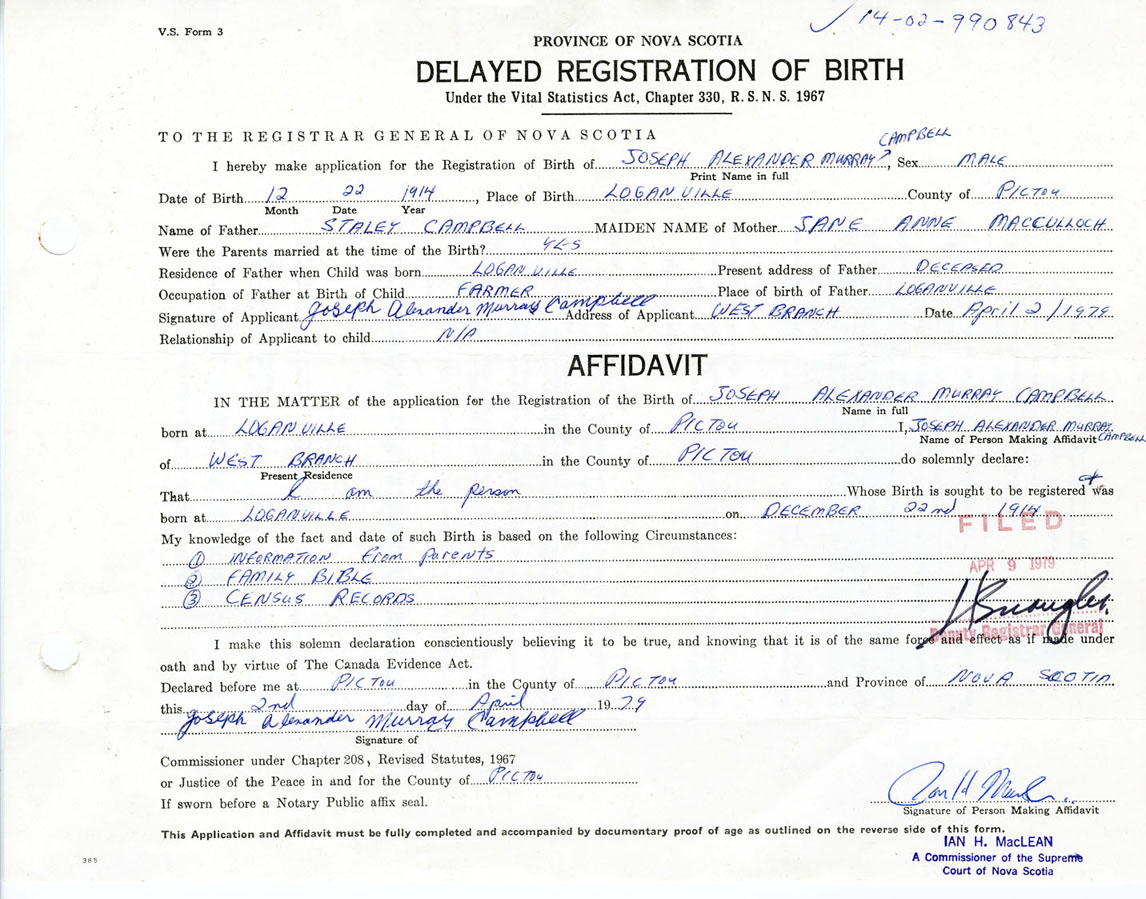 V.S. Form 3
✓ 14-02-990843
PROVINCE OF NOVA SCOTIA
DELAYED REGISTRATION OF BIRTH
Under the Vital Statistics Act, Chapter 330, R. S. N. S. 1967
TO THE REGISTRAR GENERAL OF NOVA SCOTIA
CAMPBELL
I hereby make application for the Registration of Birth of JOSEPH ALEXANDER MURRAY, Sex MALE
Print Name in full
Date of Birth 12 22 1914, Place of Birth LOGANVILLE County of PICTOU
Month Date Year
Name of Father STALEY CAMPBELL MAIDEN NAME of Mother JANE ANNE MACCULLOCH
Were the Parents married at the time of the Birth? YES
Residence of Father when Child was born LOGANVILLE Present address of Father DECEASED
Occupation of Father at Birth of Child FARMER Place of birth of Father LOGANVILLE
Signature of Applicant Joseph Alexander Murray Campbell Address of Applicant WEST BRANCH Date April 2/1979
Relationship of Applicant to child N/A
AFFIDAVIT
IN THE MATTER of the application for the Registration of the Birth of JOSEPH ALEXANDER MURRAY CAMPBELL
Name in full
born at LOGANVILLE in the County of PICTOU I, JOSEPH ALEXANDER MURRAY
Name of Person Making Affidavit CAMPBELL
of WEST BRANCH in the County of PICTOU do solemnly declare:
Present Residence
That I am the person Whose Birth is sought to be registered + was
born at LOGANVILLE on DECEMBER 22nd 1914
FILED
My knowledge of the fact and date of such Birth is based on the following Circumstances:
① INFORMATION from parents
APR 9 1979
② FAMILY BIBLE
③ CENSUS RECORDS
Deputy Registrar General
I make this solemn declaration conscientiously believing it to be true, and knowing that it is of the same force and effect as if made under
oath and by virtue of The Canada Evidence Act.
Declared before me at PICTOU in the County of PICTOU and Province of NOVA SCOTIA
this 2nd day of April 1979
Joseph Alexander Murray Campbell
Signature of
Commissioner under Chapter 208, Revised Statutes, 1967
or Justice of the Peace in and for the County of PICTOU
If sworn before a Notary Public affix seal.
Signature of Person Making Affidavit
This Application and Affidavit must be fully completed and accompanied by documentary proof of age as outlined on the reverse side of this form.
IAN H. MacLEAN
385
A Commissioner of the Supreme
Court of Nova Scotia